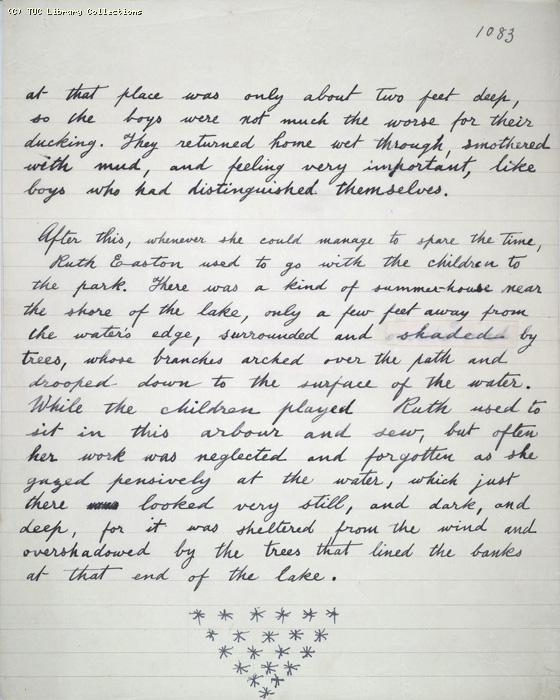 (C) TUC Library Collections
1083
at that place was only about two feet deep,
so the boys were not much the worse for their
ducking. They returned home wet through, smothered
with mud, and feeling very important, like
boys who had distinguished themselves.
After this, whenever she could manage to spare the time,
Ruth Easton used to go with the children to
the park. There was a kind of summer-house near
the shore of the lake, only a few feet away from
the water's edge, surrounded and shaded by
trees, whose branches arched over the path and
drooped down to the surface of the water.
While the children played Ruth used to
sit in this arbour and sew, but often
her work was neglected and forgotten as she
gazed pensively at the water, which just
there looked very still, and dark, and
deep, for it was sheltered from the wind and
overshadowed by the trees that lined the banks
at that end of the lake.